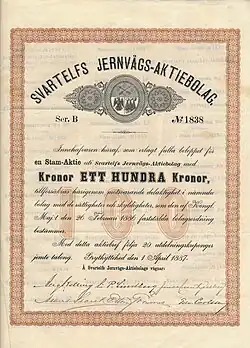 SVARTELFS JERNVÄGS-AKTIEBOLAG.
Ser. B № 1838
Innehafvaren häraf, som erlagt fulla beloppet för
en Stam-Aktie uti Svartelfs Jernvägs-Aktiebolag med
Kronor ETT HUNDRA Kronor,
tillförsäkras härigenom motsvarande delaktighet i nämnda
bolag med de rättigheter och skyldigheter, som den af Kongl.
Maj:t den 26 Februari 1886 fastställda bolagsordning
bestämmer.
Med detta aktiebref följa 20 utdelningskuponger
jemte talong. Strythyttehed den 1 April 1887.
Å Svartelfs Jernvägs-Aktiebolags vägnar: